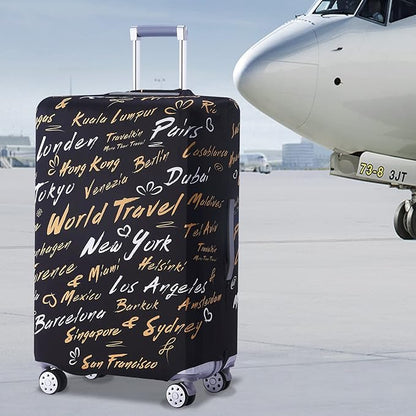 Kuala Lumpur
Travelkin
More Than Travel
Paris
Londen
Hong Kong
Berlin
Casablanca
Tokyo
Venezia
Dubai
Maldives
World Travel
Tel Aviv
New York
Travelkin
More Than Travel
& Miami
Helsinki
Mexico
Los Angeles
Barkuk
Amsterdam
Barcelona
Singapore
& Sydney
San Francisco
73-8 3JT